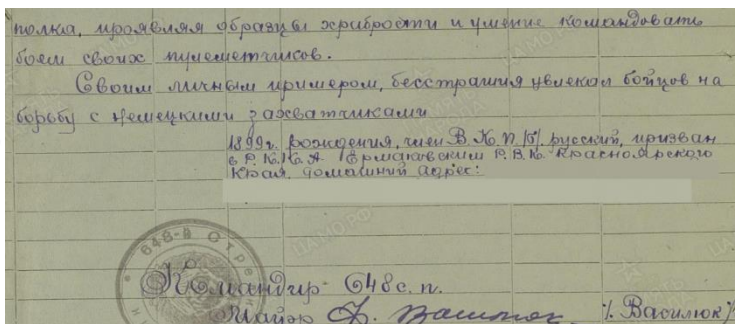 полка, проявляя образцы храбрости и умение командовать
боем своих пулеметчиков.
Своим личным примером, бесстрашия увлекал бойцов на
борьбу с немецкими захватчиками
1899г. рождения, член В.К.П./б/. русский, призван
в Р.К.К.А. Ермаковским Р.В.К. Красноярского
Края. домашний адрес:
648-й Стрел
Командир 648 с.п.
Майор Ф. Василюк /Василюк/